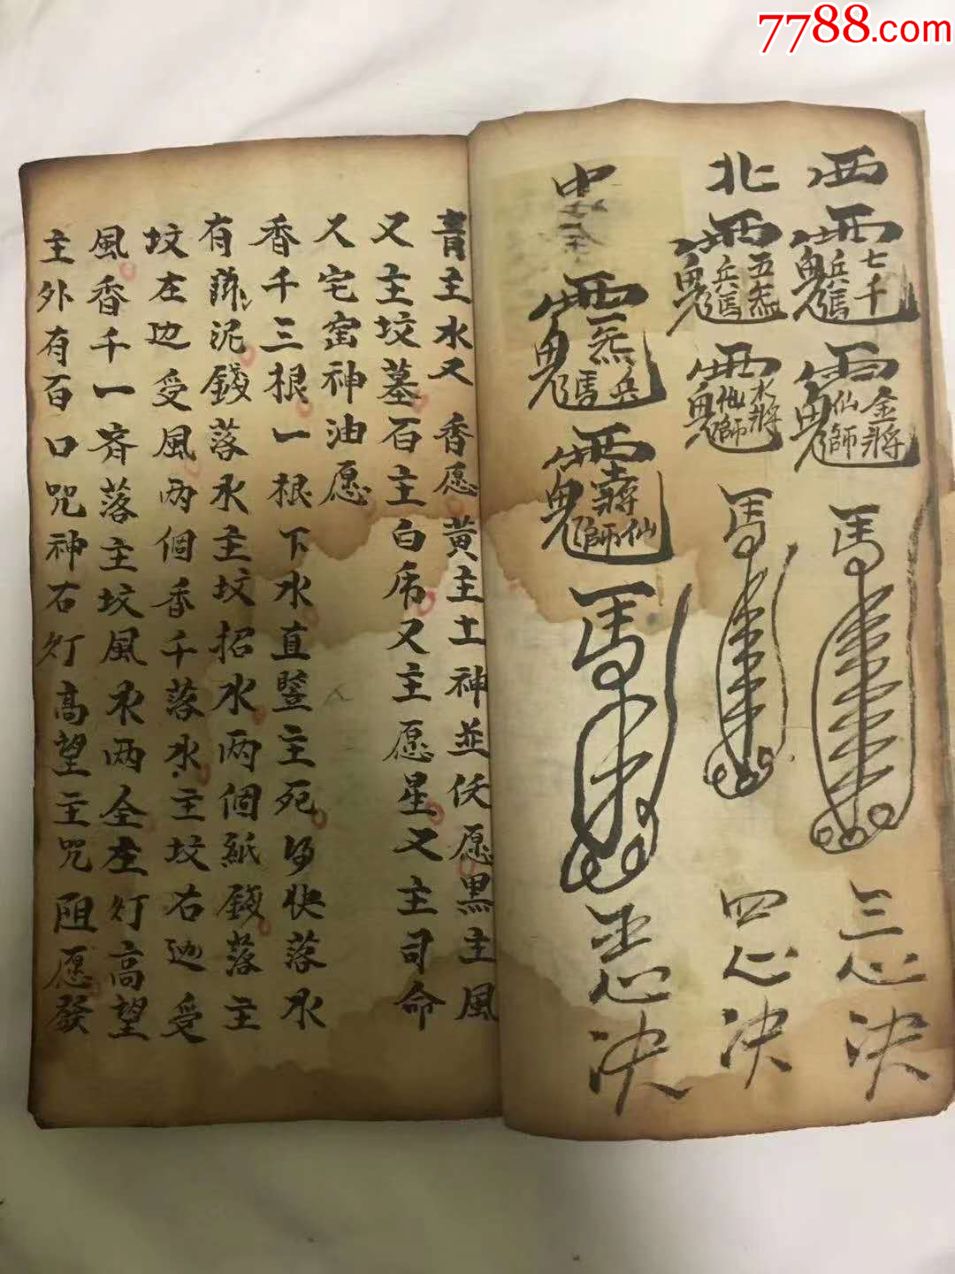 7788.com
西
七千兵馬
金將仙師
馬
三心决
北
五炁兵馬
水將仙師
馬
四心决
中
一炁兵馬
將仙師
馬
心决
青主水又香愿黄主土神並伏愿黑主風
又主坟墓百主白虎又主愿星又主司命
又宅窑神油愿
香千三根一根下水直豎主死快落水
有泥錢落水主坟招水两個紙錢落主
坟左边受風两個香千落水主坟右边受
風香千一齊落主坟風水两全左灯高望
主外有百口咒神右灯高望主咒阻愿發